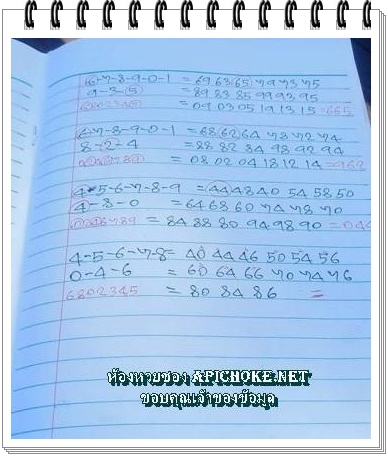 6-7-8-9-0-1 = 69 63 65 79 73 75
9-3-5 = 89 83 85 99 93 95
= 09 03 05 19 13 15 = 665
6-7-8-9-0-1 = 68 62 64 78 72 74
8-2-4 = 88 82 84 98 92 94
= 08 02 04 18 12 14 = 962
4-5-6-7-8-9 = 44 48 40 54 58 50
4-8-0 = 64 68 60 74 78 70
= 84 88 80 94 98 90 = 044
4-5-6-7-8 = 40 44 46 50 54 56
0-4-6 = 60 64 66 70 74 76
6802345 = 80 84 86 =
ห้องหวยซอง APICHOKE.NET
ขอบคุณเจ้าของข้อมูล